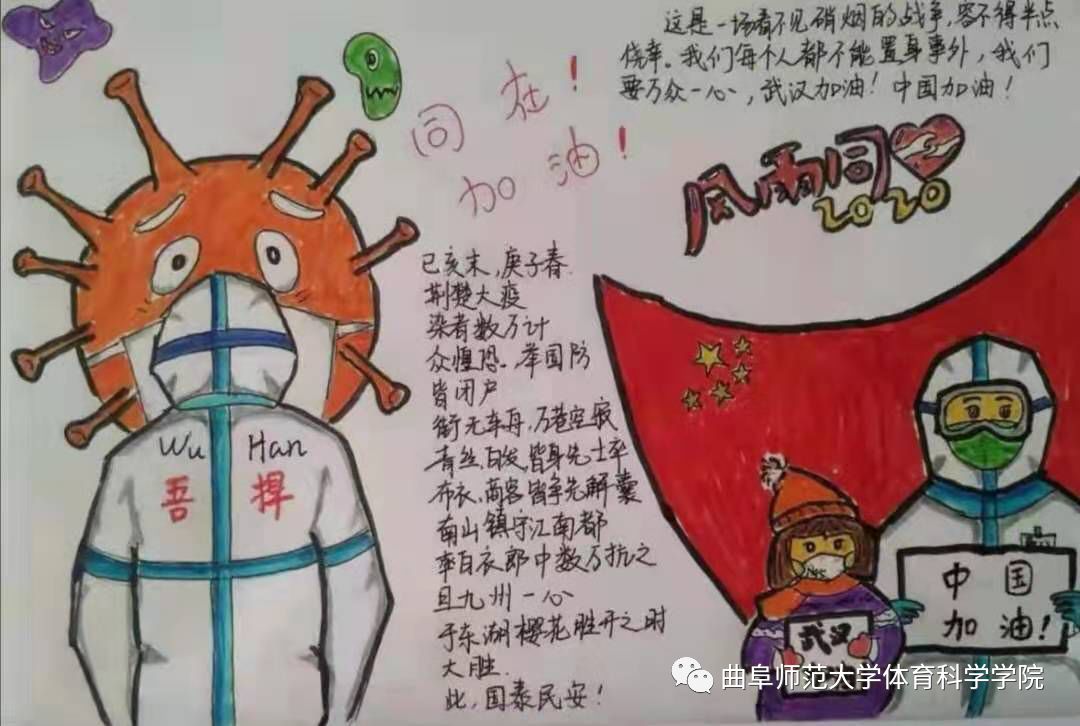 这是一场看不见硝烟的战争,容不得半点
侥幸。我们每个人都不能置身事外,我们
要万众一心,武汉加油!中国加油!
同在!
加油!
风雨同
2020
己亥末,庚子春.
荆楚大疫
染者数万计
众惶恐。举国防
皆闭户
街无车舟,万巷空寂
青丝,白发,皆身先士卒
布衣,商客皆争先解囊
南山镇守江南都
率白衣郎中数万抗之
且九州一心
于东湖樱花胜开之时
大胜.
此,国泰民安!
Wu Han
吾捍
中国
加油!
武汉
曲阜师范大学体育科学学院